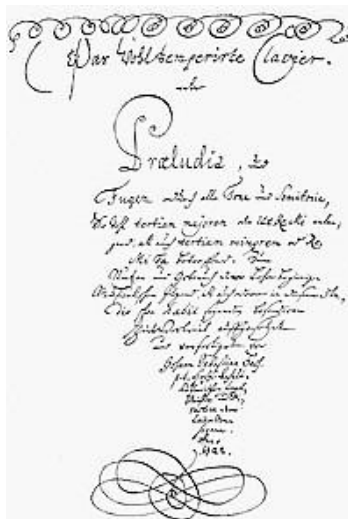 Das Wohltemperirte Clavier.
oder
Præludia, und
Fugen durch alle Tone und Semitonia,
So wohl tertiam majorem oder Ut Re Mi
als auch tertiam minorem oder Re
Mi Fa betreffend. Zum
Nutzen und Gebrauch der Lehrbegierigen
Musicalischen Jugend, als auch derer in diesem stu
dio schon habil seyenden besonderem
Zeitvertreib auffgesetzet
und verfertiget von
Johann Sebastian Bach.
Anno
1722.